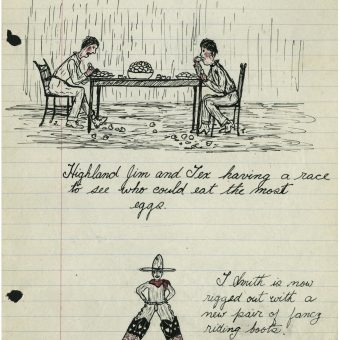 Highland Jim and Tex having a race
to see who could eat the most
eggs.
T. Smith is now
rigged out with a
new pair of fancy
riding boots.